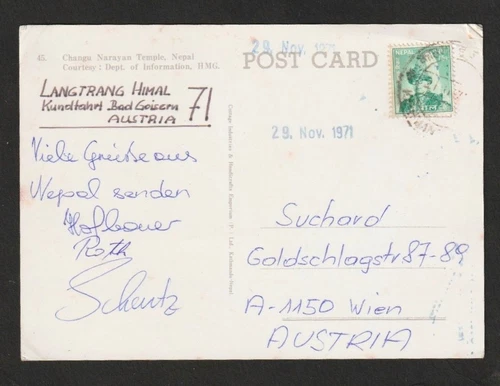 29. Nov. 1971
45. Changu Narayan Temple, Nepal
Courtesy : Dept. of Information, HMG.
POST CARD
LANGTRANG HIMAL
Kundfahrt Bad Goisern 71
AUSTRIA
29. Nov. 1971
Viele Grüsse aus
Nepal senden
Hofbauer
Roth
Schantz
Cottage Industries & Handicrafts Emporium (P) Ltd. Kathmandu-Nepal
Suchard
Goldschlagstr 87-89
A-1150 Wien
AUSTRIA